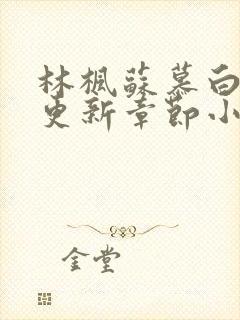 林楓蘇慕白
更新章節小
金堂